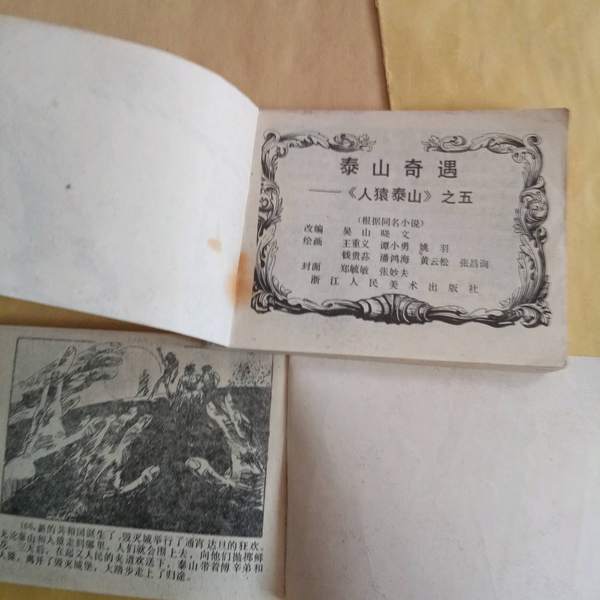 泰山奇遇
——《人猿泰山》之五
（根据同名小说）
改编 吴山 晓文
绘画 王重义 谭小勇 姚羽
钱贵荪 潘鸿海 黄云松 张昌洵
封面 郑敏敏 张妙夫
浙江人民美术出版社
166.新的共和国诞生了，毁灭城举行了通宵达旦的狂欢。
无论泰山和人猿走到哪里，人们就会围上去，向他们抛掷鲜
花。三天后，在起义人民的夹道欢送下，泰山带着博辛弟和
人猿，离开了毁灭城堡，大踏步走上了归途。